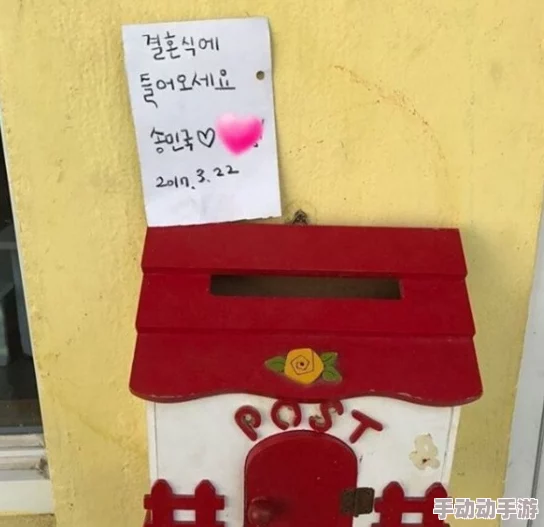 결혼식에
들어오세요
송민국♡
2017.3.22
POST
手动动手游